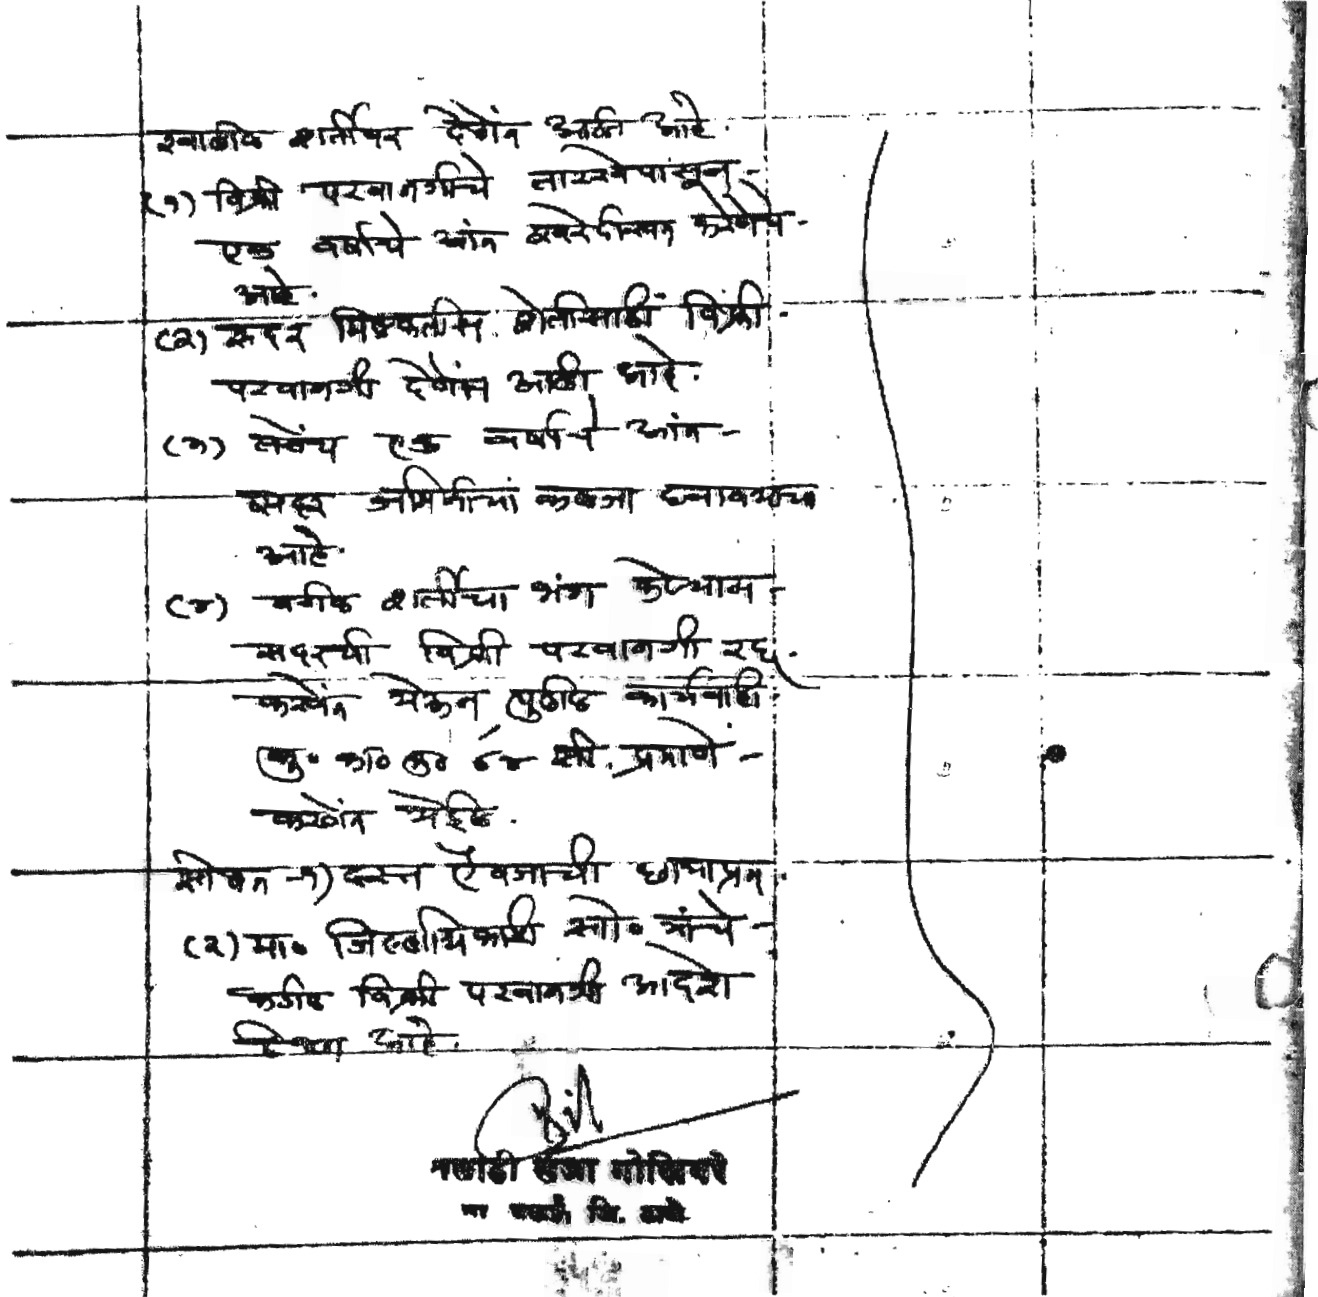 खालील शर्तीवर देणेंत आली आहे.
(१) विक्री परवानगीचे तारखेपासून -
एक वर्षाचे आंत खरेदीखत करणेचे -
आहे.
(२) सदर मिळकतीस शेतीसाठी विक्री -
परवानगी देणेंत आली आहे.
(३) तसेंच एक वर्षाचे आंत -
सदर जमिनीचा कबजा घ्यावयाचा
आहे.
(४) वरील शर्तीचा भंग केल्यास -
सदरची विक्री परवानगी रद्द -
करणेंत येऊन पुढील कार्यवाही -
कु. का. कु. ८४ सी. प्रमाणे -
करणेंत येईल.
सोबत - १) दस्त ऐवजाची छायाप्रत -
(२) मा. जिल्हाधिकारी सो. यांचे -
कडील विक्री परवानगी आदेश
तलाठी सजा गोखिवरे
ता. वसई, जि. ठाणे